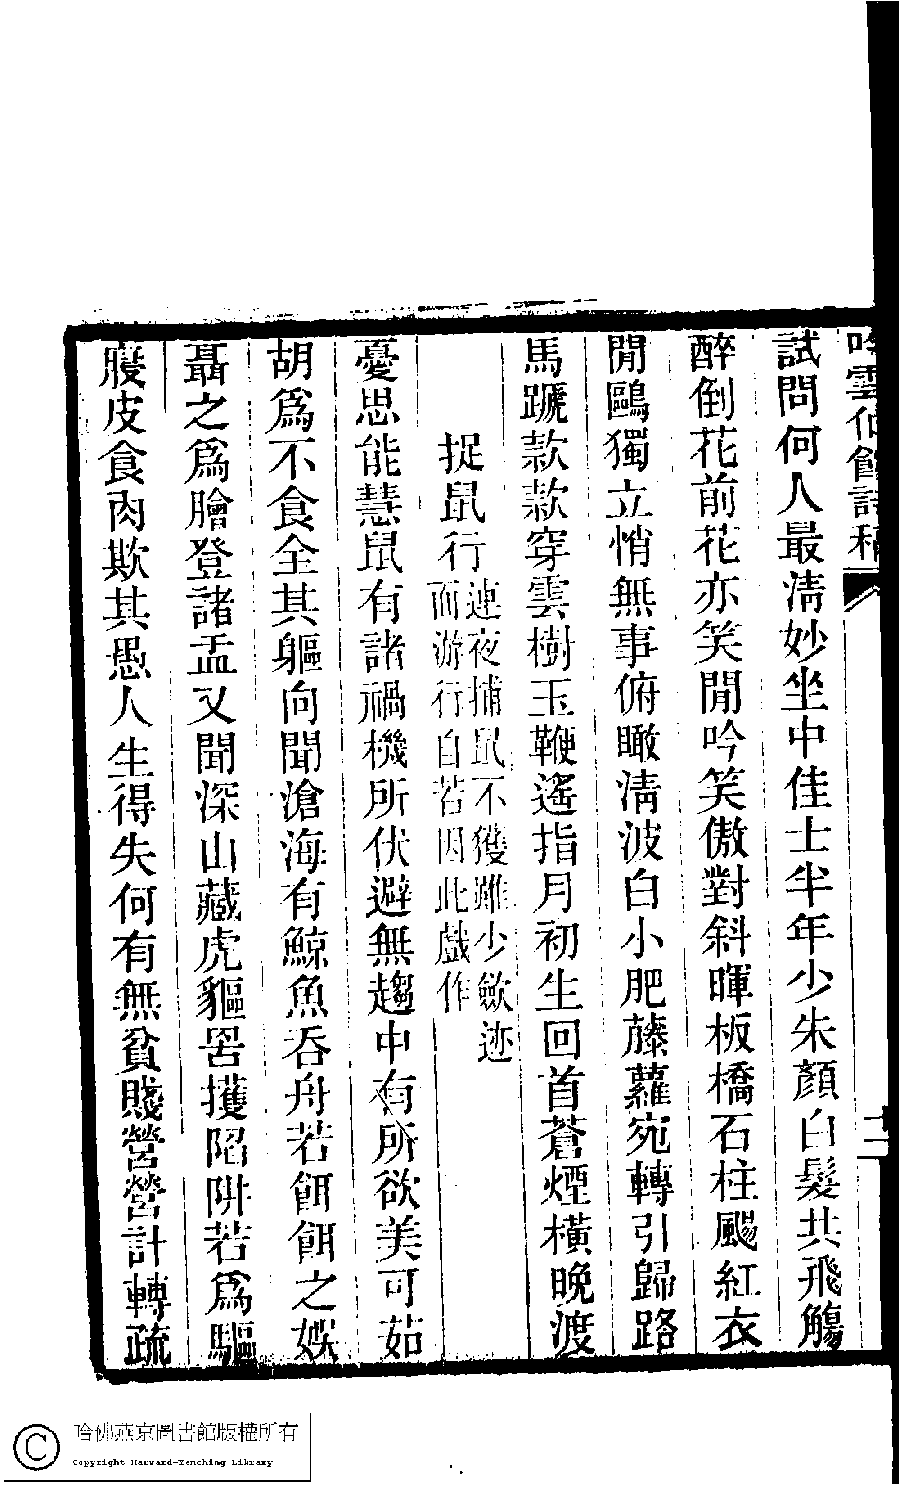 吟雲仙館詩稿
十二
試問何人最清妙坐中佳士半年少朱顏白髮共飛觴
醉倒花前花亦笑閒吟笑傲對斜暉板橋石柱颺紅衣
閒鷗獨立悄無事俯瞰清波白小肥藤蘿宛轉引歸路
馬蹏款款穿雲樹玉鞭遙指月初生回首蒼煙橫晚渡
捉鼠行
連夜捕鼠不獲雖少歛迹
而游行自若因此戲作
憂思能慧鼠有諸禍機所伏避無趨中有所欲美可茹
胡爲不食全其軀向聞滄海有鯨魚吞舟若餌餌之娛
聶之爲膾登諸盂又聞深山藏虎貙罟擭陷阱若爲驅
腹皮食肉欺其愚人生得失何有無貧賤營營計轉疏
哈佛燕京圖書館版權所有
Copyright Harvard-Yenching Library